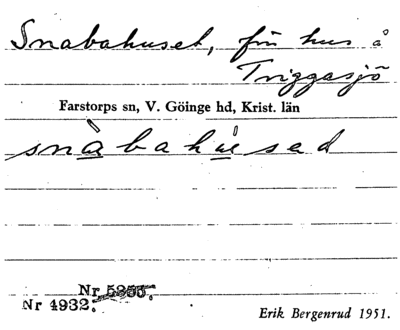 Snabahuset, fin hus å
Tviggasjö
Farstorps sn, V. Göinge hd, Krist. län
snàbahu̲sed
Nr 5355.
Nr 4932.
Erik Bergenrud 1951.